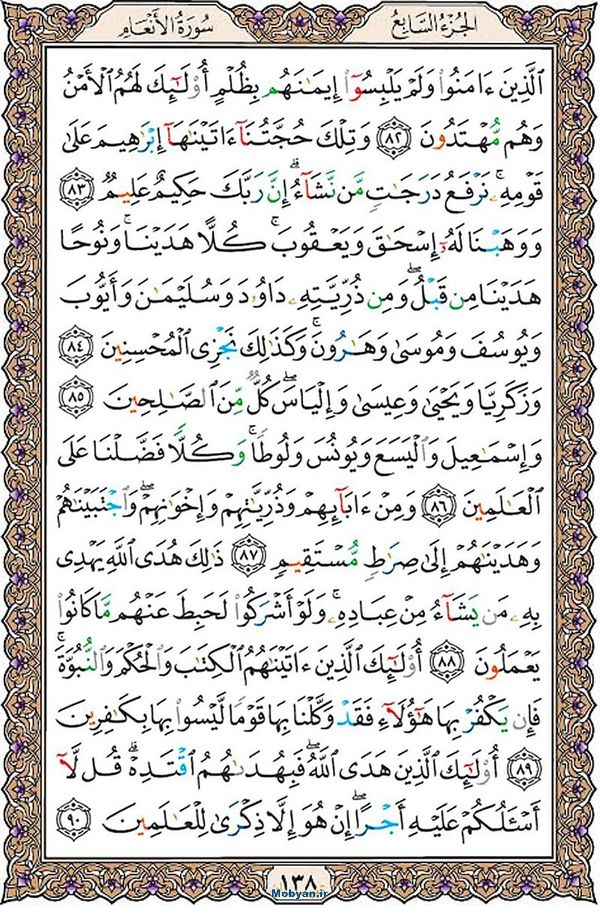 الجُزءُ السَّابِعُ
سُورَةُ الأَنعَامِ
ٱلَّذِينَ ءَامَنُوا۟ وَلَمْ يَلْبِسُوٓا۟ إِيمَـٰنَهُم بِظُلْمٍ أُو۟لَـٰٓئِكَ لَهُمُ ٱلْأَمْنُ
وَهُم مُّهْتَدُونَ ٨٢ وَتِلْكَ حُجَّتُنَآ ءَاتَيْنَـٰهَآ إِبْرَٰهِيمَ عَلَىٰ
قَوْمِهِۦ ۚ نَرْفَعُ دَرَجَـٰتٍ مَّن نَّشَآءُ ۗ إِنَّ رَبَّكَ حَكِيمٌ عَلِيمٌ ٨٣
وَوَهَبْنَا لَهُۥٓ إِسْحَـٰقَ وَيَعْقُوبَ ۚ كُلًّا هَدَيْنَا ۚ وَنُوحًا
هَدَيْنَا مِن قَبْلُ ۖ وَمِن ذُرِّيَّتِهِۦ دَاوُۥدَ وَسُلَيْمَـٰنَ وَأَيُّوبَ
وَيُوسُفَ وَمُوسَىٰ وَهَـٰرُونَ ۚ وَكَذَٰلِكَ نَجْزِى ٱلْمُحْسِنِينَ ٨٤
وَزَكَرِيَّا وَيَحْيَىٰ وَعِيسَىٰ وَإِلْيَاسَ ۖ كُلٌّ مِّنَ ٱلصَّـٰلِحِينَ ٨٥
وَإِسْمَـٰعِيلَ وَٱلْيَسَعَ وَيُونُسَ وَلُوطًا ۚ وَكُلًّا فَضَّلْنَا عَلَى
ٱلْعَـٰلَمِينَ ٨٦ وَمِنْ ءَابَآئِهِمْ وَذُرِّيَّـٰتِهِمْ وَإِخْوَٰنِهِمْ ۖ وَٱجْتَبَيْنَـٰهُمْ
وَهَدَيْنَـٰهُمْ إِلَىٰ صِرَٰطٍ مُّسْتَقِيمٍ ٨٧ ذَٰلِكَ هُدَى ٱللَّهِ يَهْدِى
بِهِۦ مَن يَشَآءُ مِنْ عِبَادِهِۦ ۚ وَلَوْ أَشْرَكُوا۟ لَحَبِطَ عَنْهُم مَّا كَانُوا۟
يَعْمَلُونَ ٨٨ أُو۟لَـٰٓئِكَ ٱلَّذِينَ ءَاتَيْنَـٰهُمُ ٱلْكِتَـٰبَ وَٱلْحُكْمَ وَٱلنُّبُوَّةَ ۚ
فَإِن يَكْفُرْ بِهَا هَـٰٓؤُلَآءِ فَقَدْ وَكَّلْنَا بِهَا قَوْمًا لَّيْسُوا۟ بِهَا بِكَـٰفِرِينَ
٨٩ أُو۟لَـٰٓئِكَ ٱلَّذِينَ هَدَى ٱللَّهُ ۖ فَبِهُدَىٰهُمُ ٱقْتَدِهْ ۗ قُل لَّآ
أَسْـَٔلُكُمْ عَلَيْهِ أَجْرًا ۖ إِنْ هُوَ إِلَّا ذِكْرَىٰ لِلْعَـٰلَمِينَ ٩٠
١٣٨
Mobyan.ir